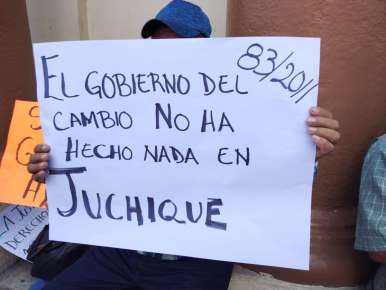 83/2011
EL GOBIERNO DEL
CAMBIO NO HA
HECHO NADA EN
JUCHIQUE
DERECHO